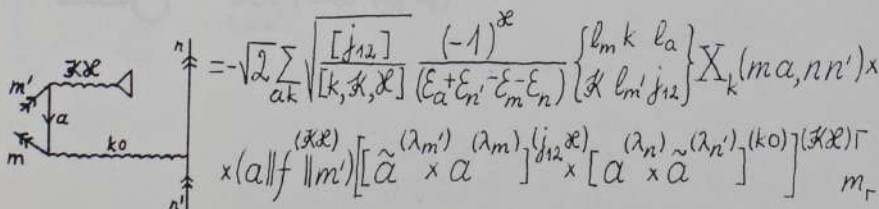 n
𝒦ϰ
m'
a
m
k0
n'
=-√2 Σ_{ak} √([j₁₂]/[k,𝒦,ϰ]) (-1)^ϰ/(ε_a+ε_{n'}-ε_m-ε_n) {l_m k l_a / 𝒦 l_{m'} j₁₂} X_k(ma,nn')×
×(a||f^{(𝒦ϰ)}||m')[[ã^{(λ_{m'})}×a^{(λ_m)}]^{(j₁₂ϰ)}×[a^{(λ_n)}×ã^{(λ_{n'})}]^{(k0)}]^{(𝒦ϰ)Γ}_{m_Γ}